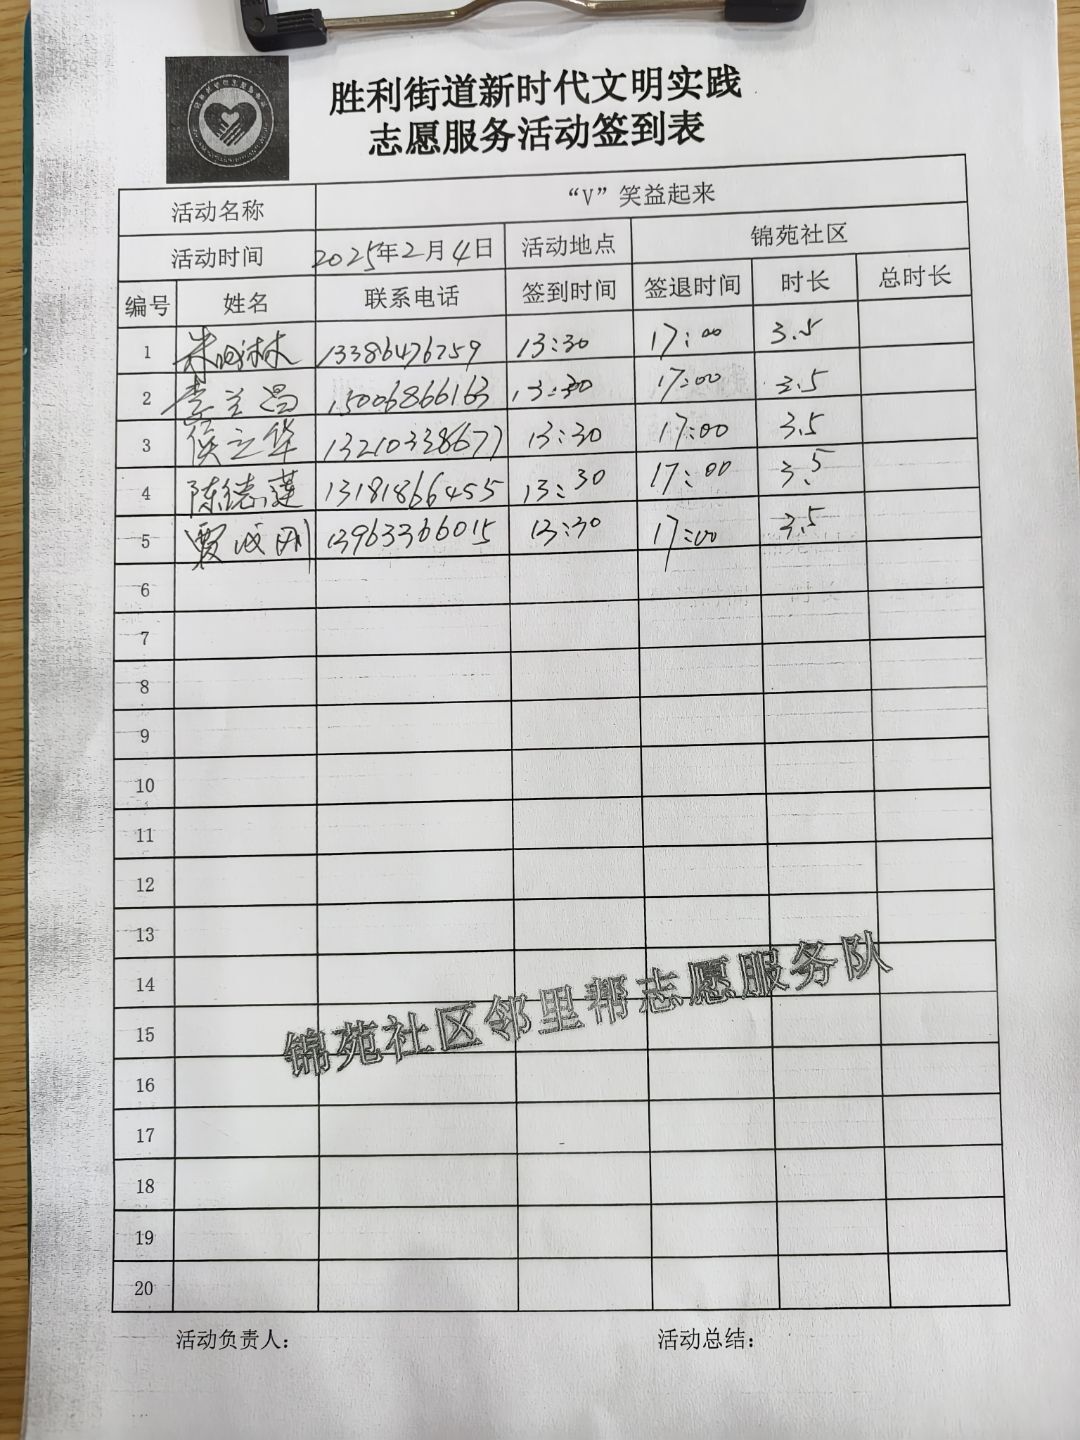 胜利街道新时代文明实践
志愿服务活动签到表
活动名称 “V”笑益起来
活动时间 2025年2月4日 活动地点 锦苑社区
编号 姓名 联系电话 签到时间 签退时间 时长 总时长
1 13386476759 13:30 17:00 3.5
2 李兰昌 15006866163 13:30 17:00 3.5
3 侯立华 13210338677 13:30 17:00 3.5
4 陈德莲 13181866455 13:30 17:00 3.5
5 贾成刚 13963366015 13:30 17:00 3.5
6
7
8
9
10
11
12
13
14
15
16
17
18
19
20
锦苑社区邻里帮志愿服务队
活动负责人: 活动总结: